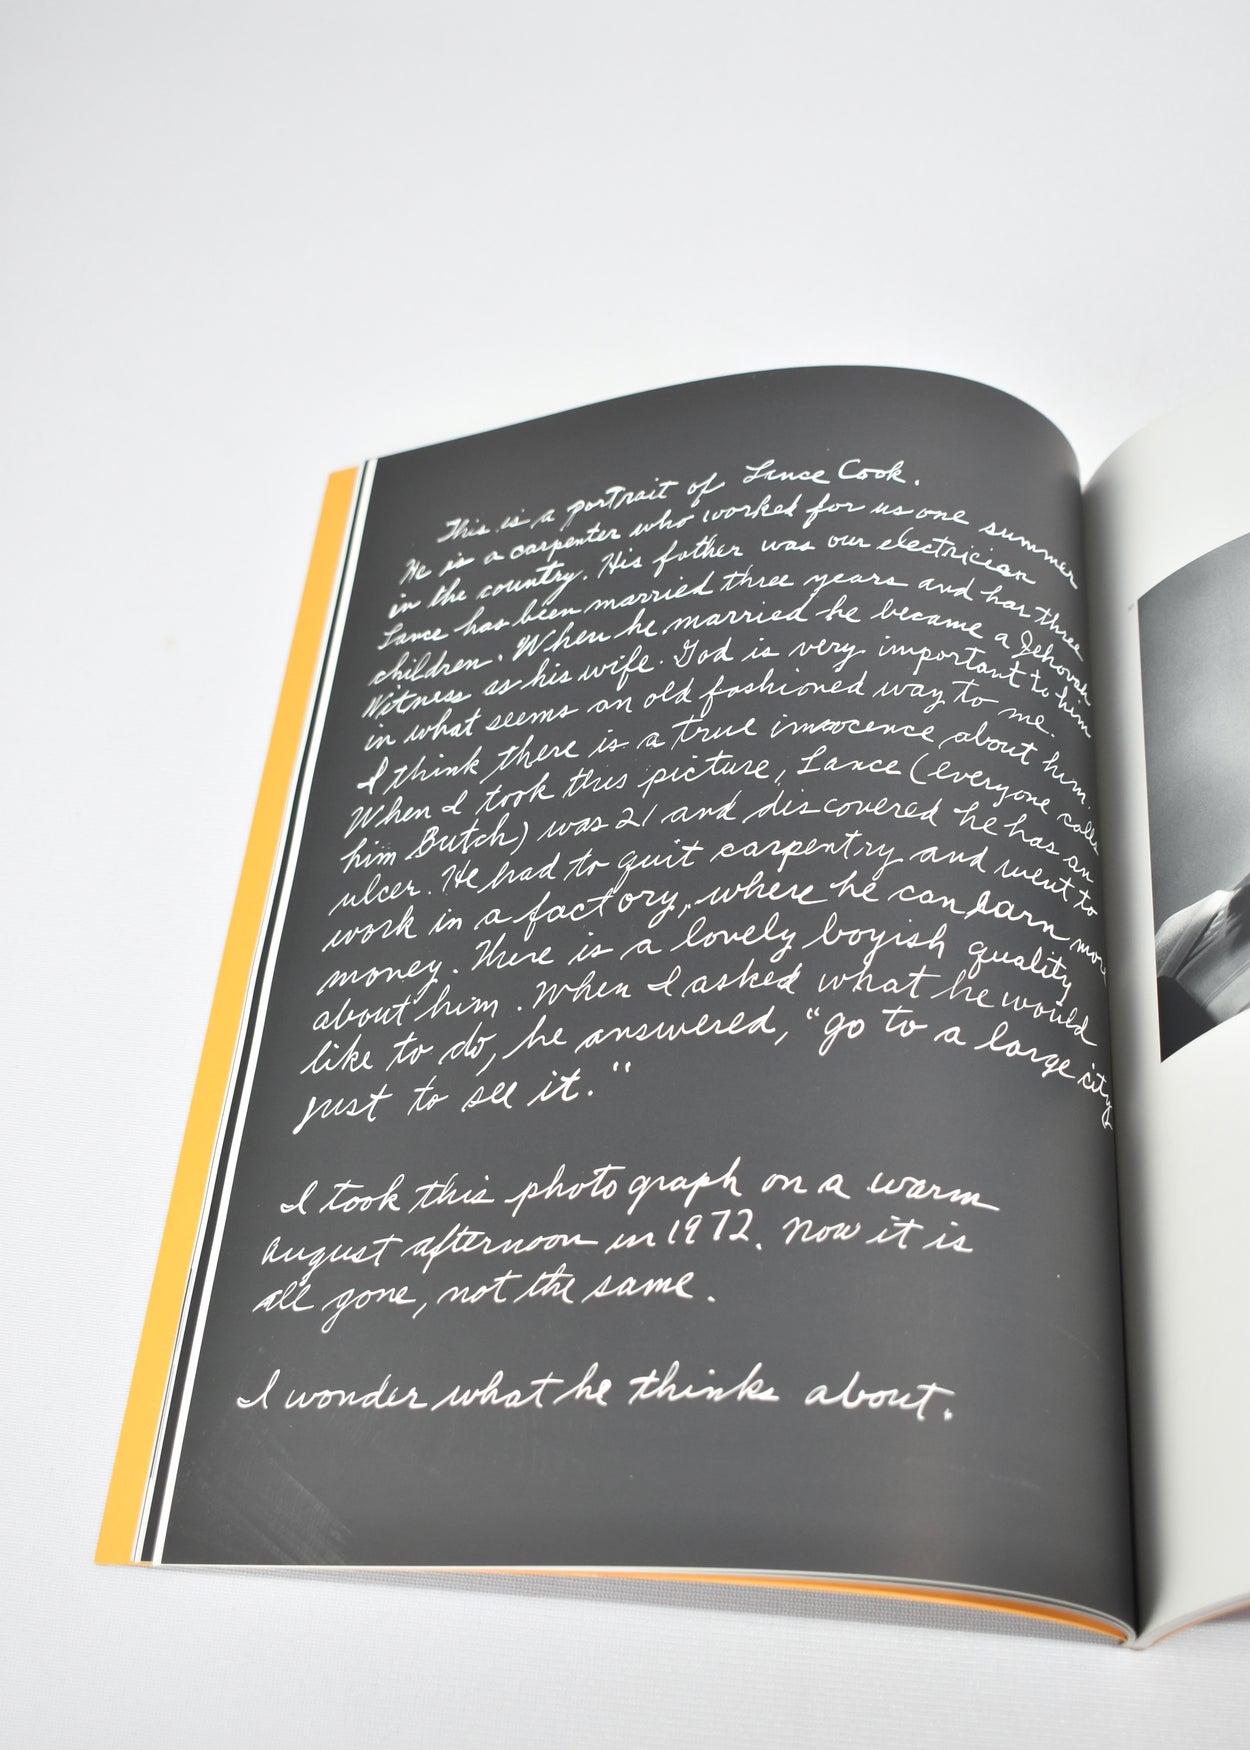 This is a portrait of Lance Cook.
He is a carpenter who worked for us one summer
in the country. His father was our electrician
Lance has been married three years and has three
children. When he married he became a Jehovah
Witness as his wife. God is very important to him
in what seems an old fashioned way to me.
I think there is a true innocence about him.
When I took this picture, Lance (everyone calls
him Butch) was 21 and discovered he has an
ulcer. He had to quit carpentry and went to
work in a factory, where he can earn more
money. There is a lovely boyish quality
about him. When I asked what he would
like to do, he answered, "go to a large city
just to see it."
I took this photograph on a warm
August afternoon in 1972. Now it is
all gone, not the same.
I wonder what he thinks about.